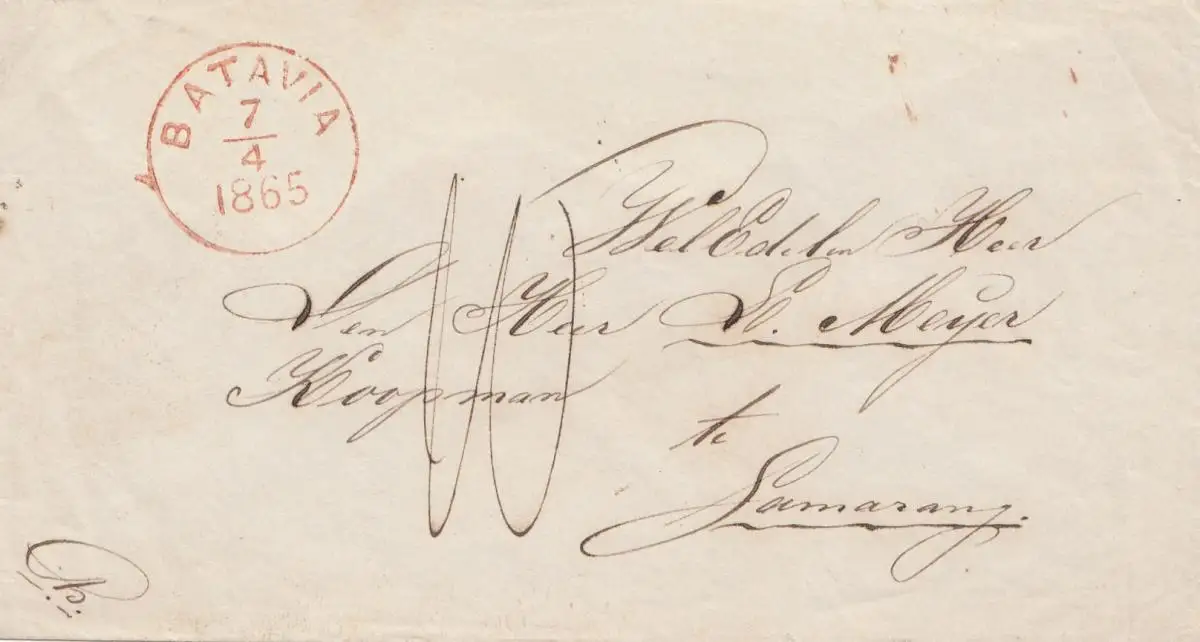 BATAVIA
7
4
1865
WelEdelen Heer
Den Heer E. Meyer
Koopman
te
Samarang.